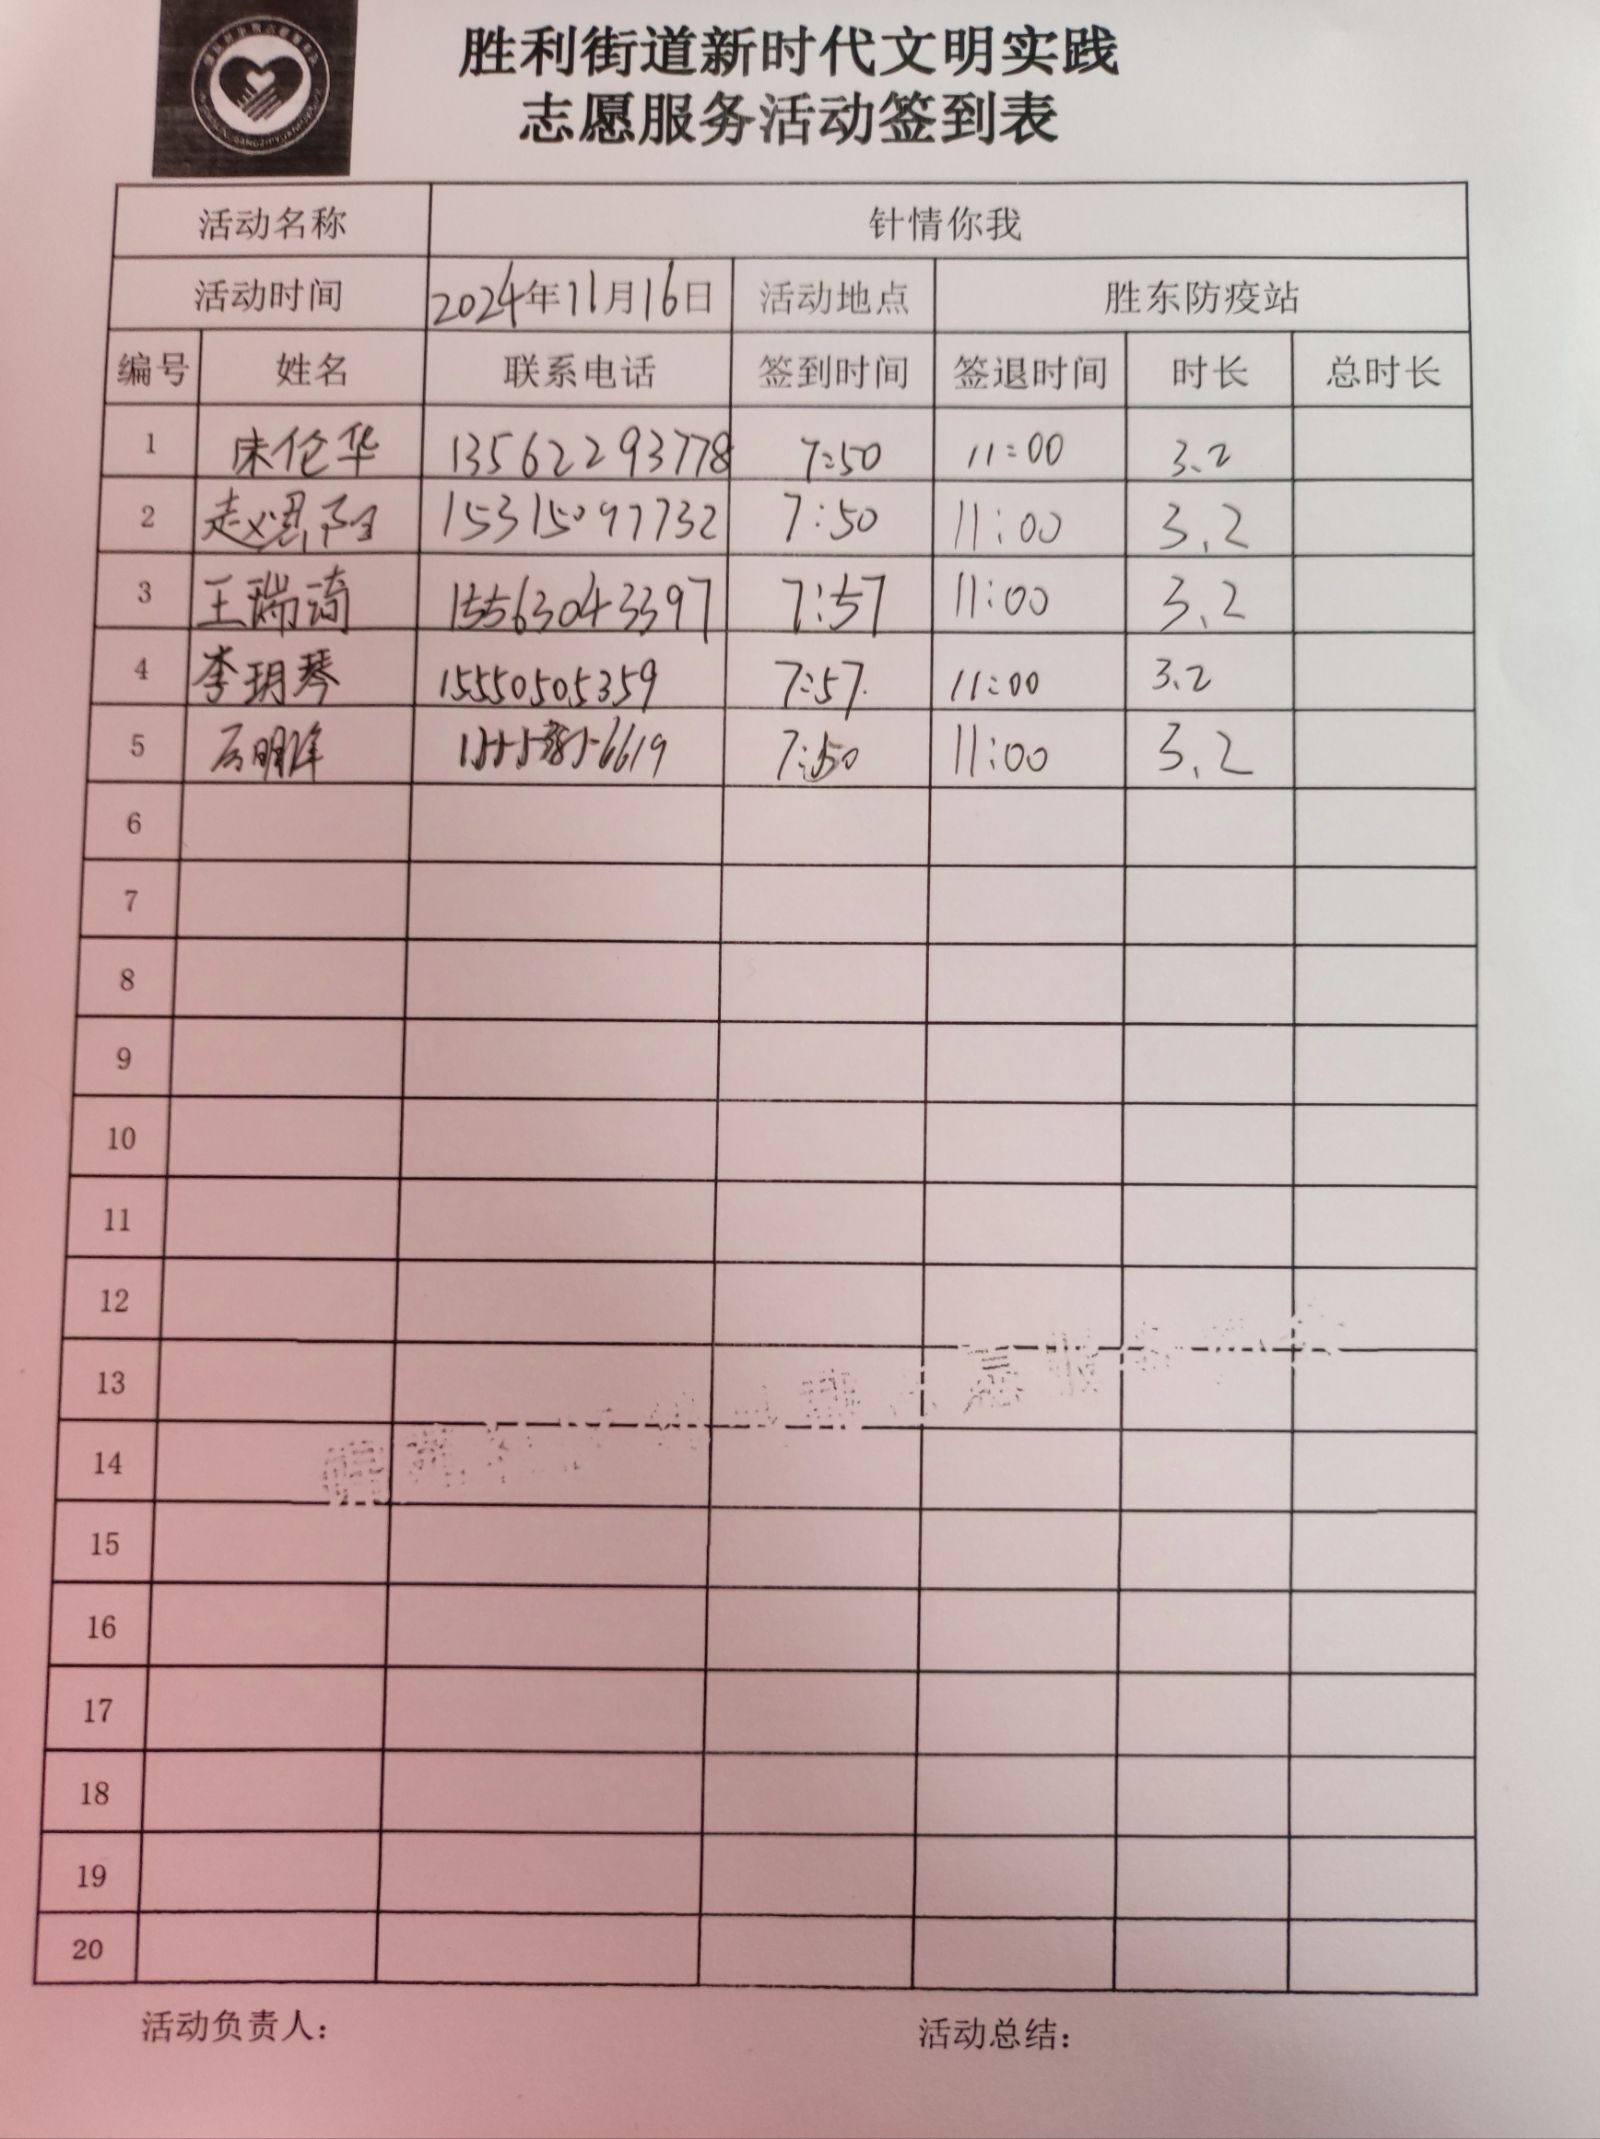 胜利街道新时代文明实践
志愿服务活动签到表
活动名称 针情你我
活动时间 2024年11月16日 活动地点 胜东防疫站
编号 姓名 联系电话 签到时间 签退时间 时长 总时长
1 宋伦华 13562293778 7:50 11:00 3.2
2 赵 阳 15315097732 7:50 11:00 3.2
3 王瑞琦 15563043397 7:57 11:00 3.2
4 李玥琴 15550505359 7:57 11:00 3.2
5 7:50 11:00 3.2
6
7
8
9
10
11
12
13
14
15
16
17
18
19
20
活动负责人： 活动总结：